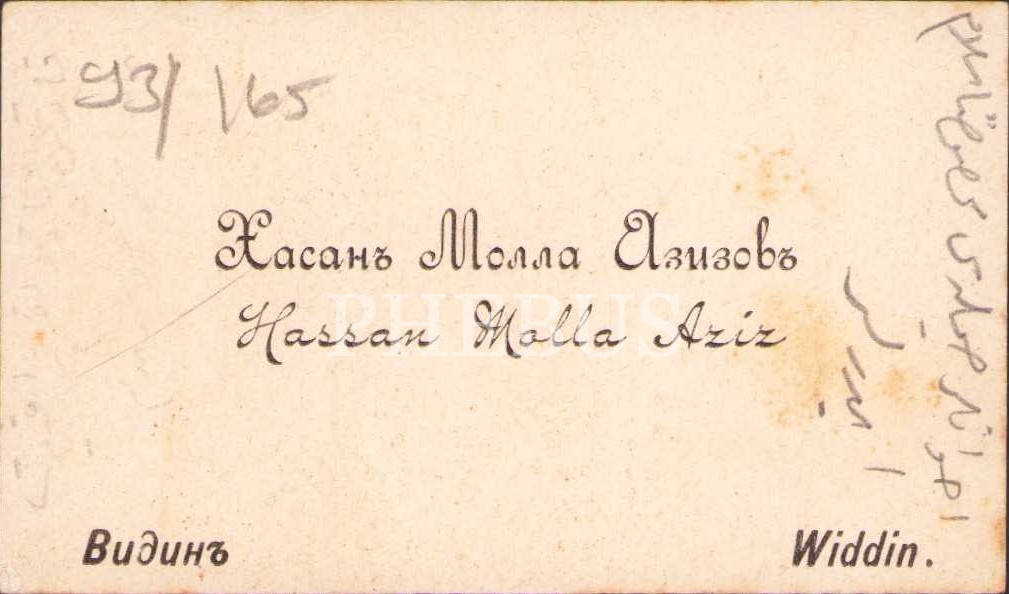 93/ 165
Хасанъ Молла Азизовъ
Hassan Molla Aziz
PHEBUS
Видинъ
Widdin.